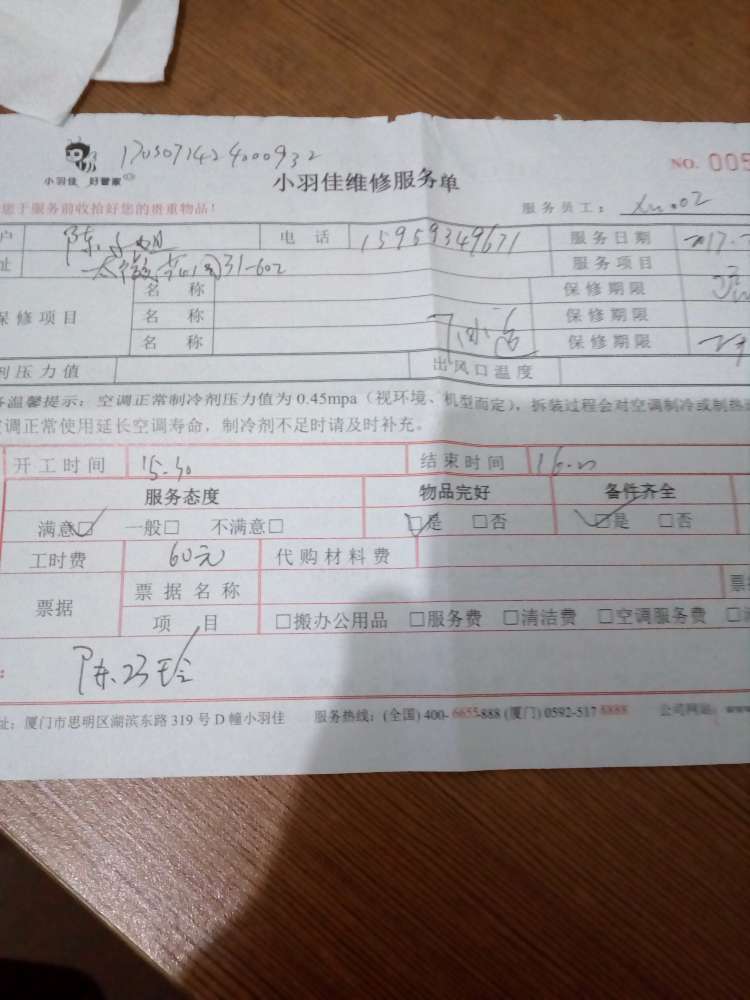 1705071424000932
小羽佳 好管家
小羽佳维修服务单
NO. 005
您于服务前收拾好您的贵重物品！
服务员工：
户 陈 电 话 15959349671 服务日期
址 31-602 服务项目
保修项目 名 称 保修期限
名 称 保修期限
名 称 保修期限
剂压力值 出风口温度
温馨提示：空调正常制冷剂压力值为 0.45mpa（视环境、机型而定），拆装过程会对空调制冷或制热
调正常使用延长空调寿命，制冷剂不足时请及时补充。
开工时间 15-30 结束时间
服务态度 物品完好 备件齐全
满意☑ 一般□ 不满意□ ☑是 □否 ☑是 □否
工时费 60元 代购材料费
票据 票据名称 票
项 目 □搬办公用品 □服务费 □清洁费 □空调服务费 □
陈
址：厦门市思明区湖滨东路 319 号 D 幢小羽佳 服务热线：(全国) 400-6655-888 (厦门) 0592-517 8888 公司网站：www